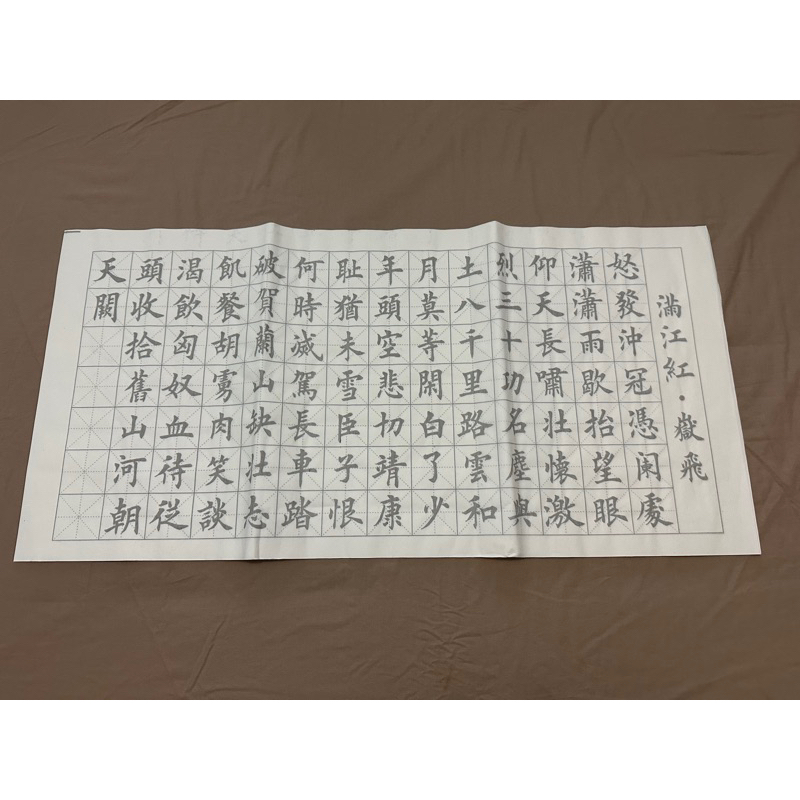 滿江紅·嶽飛
怒發沖冠憑闌處
瀟瀟雨歇抬望眼
仰天長嘯壯懷激
烈三十功名塵與
土八千里路雲和
月莫等閑白了少
年頭空悲切靖康
耻猶未雪臣子恨
何時滅駕長車踏
破賀蘭山缺壯志
飢餐胡虜肉笑談
渴飲匈奴血待從
頭收拾舊山河朝
天闕